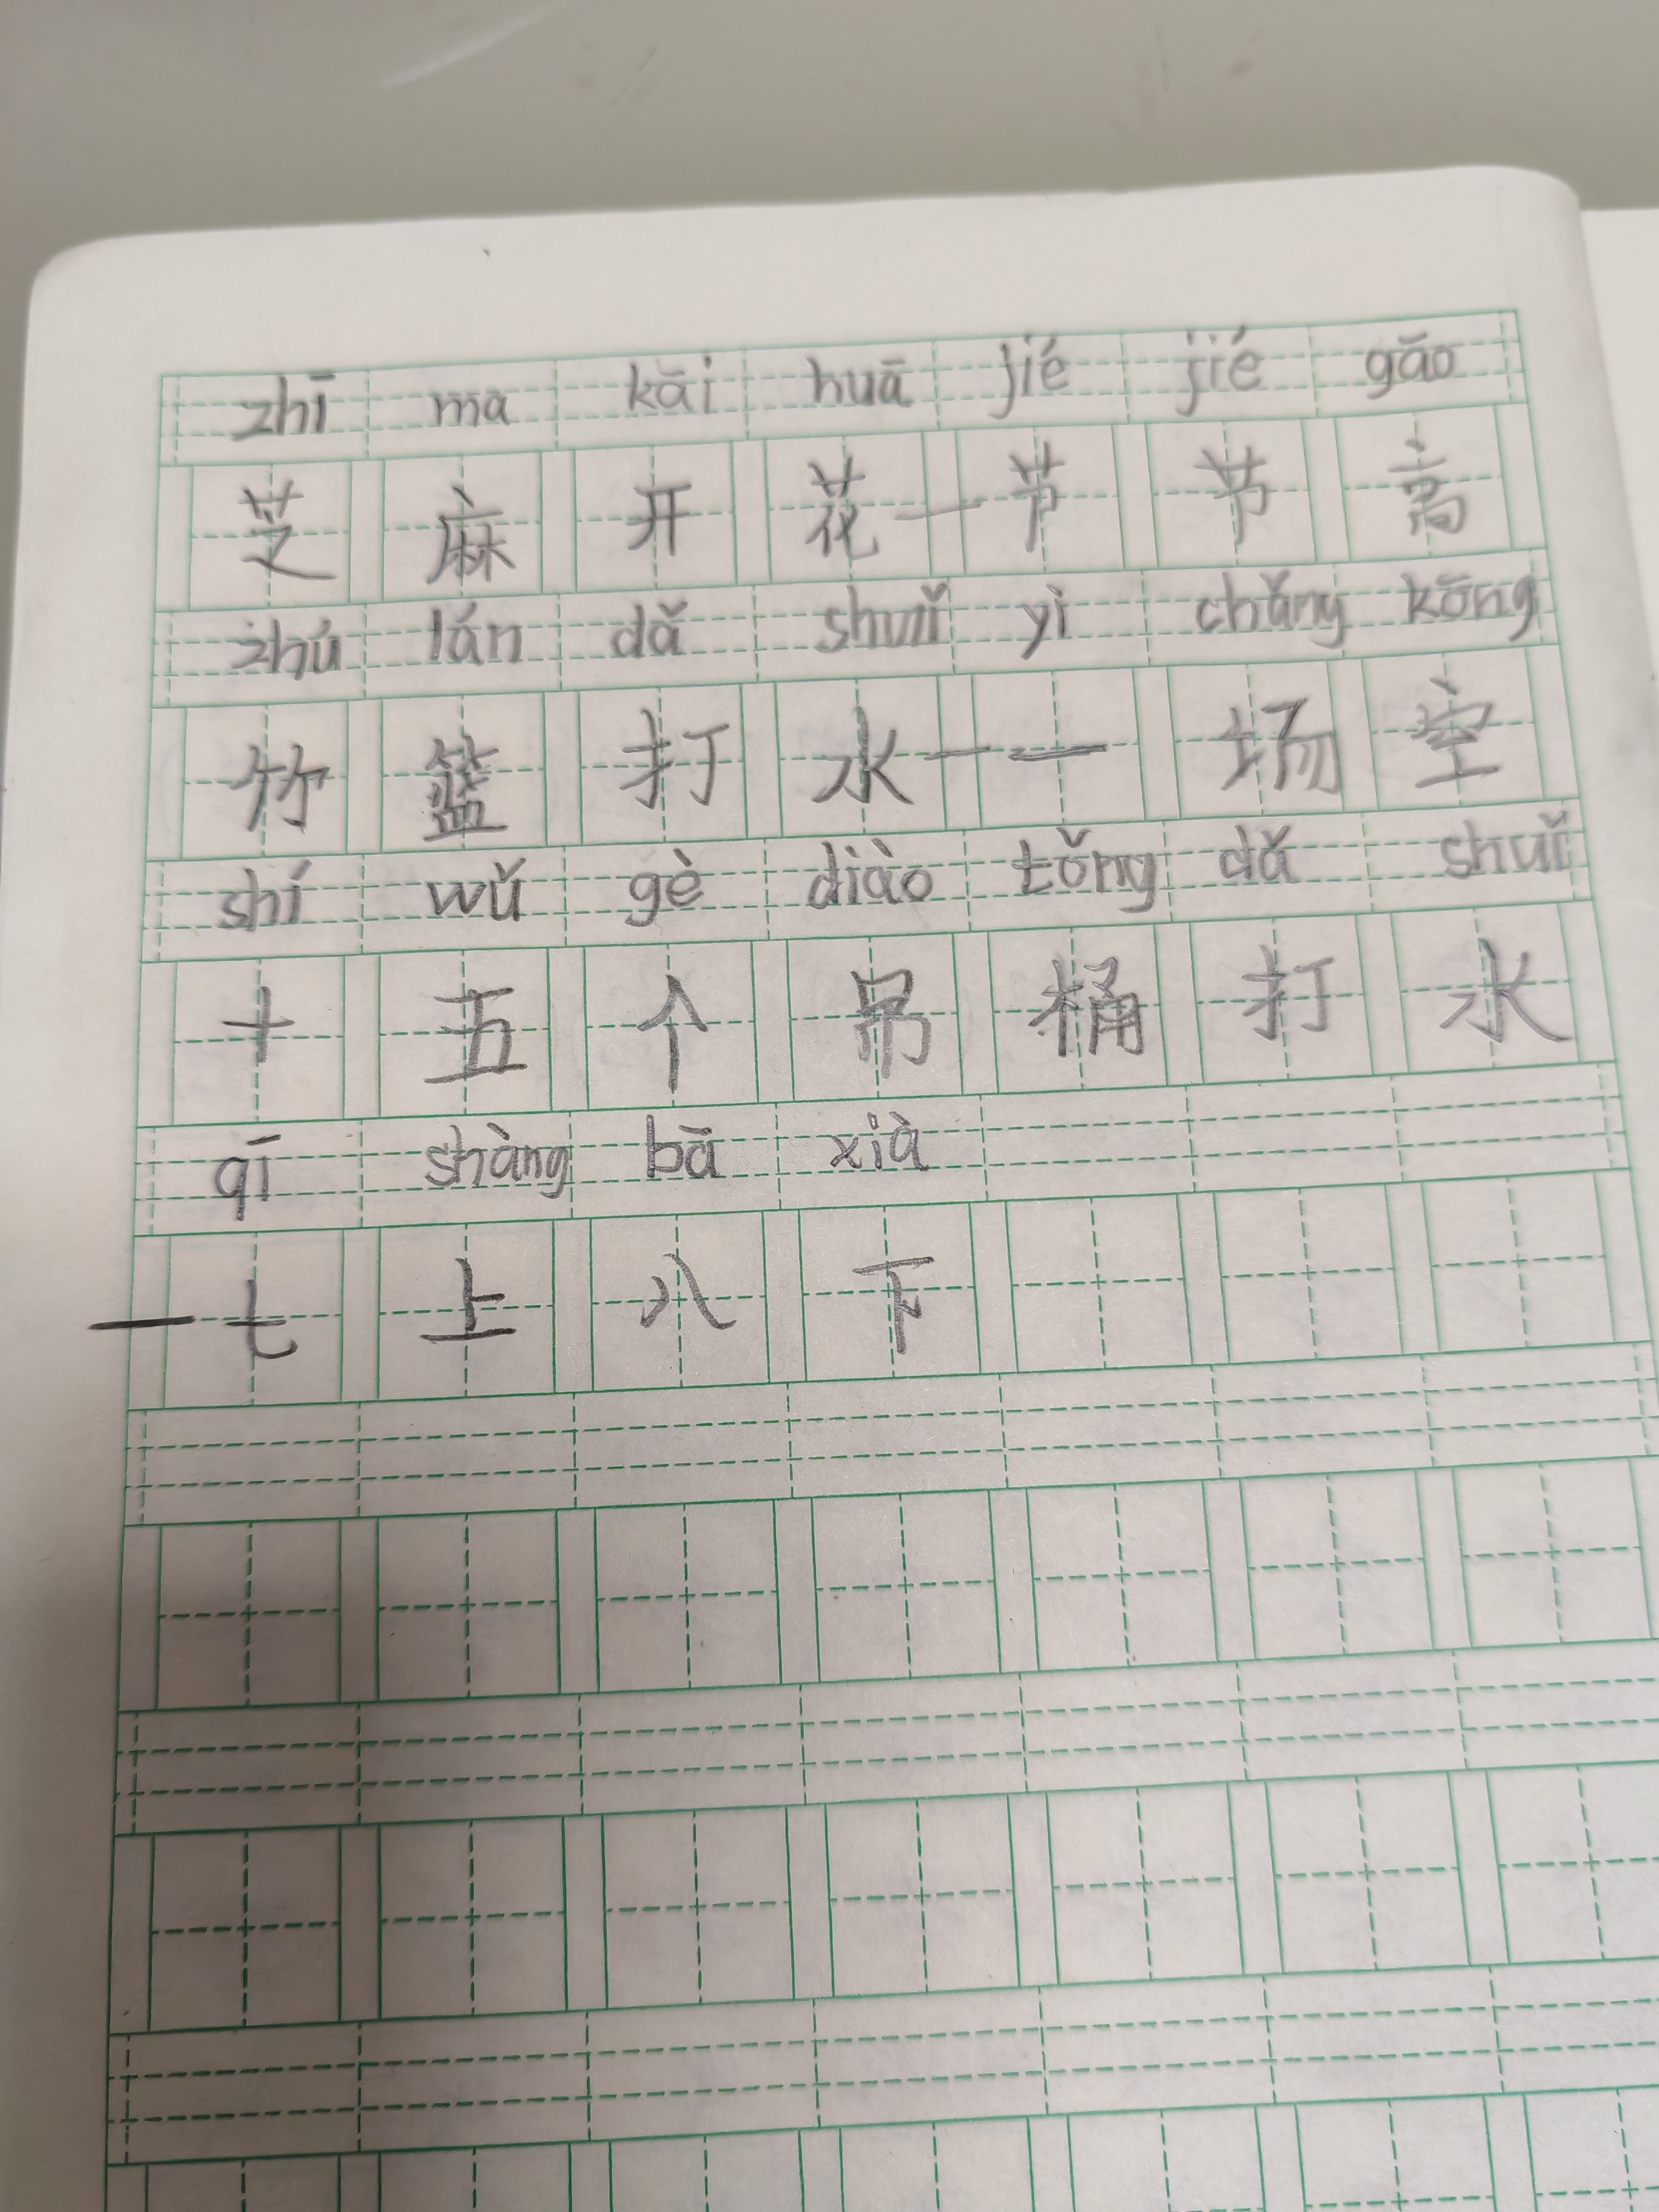 zhī ma kāi huā jié jié gāo
芝麻开花一节节高
zhú lán dǎ shuǐ yì chǎng kōng
竹篮打水一一场空
shí wǔ gè diào tǒng dǎ shuǐ
十五个吊桶打水
qī shàng bā xià
一七上八下